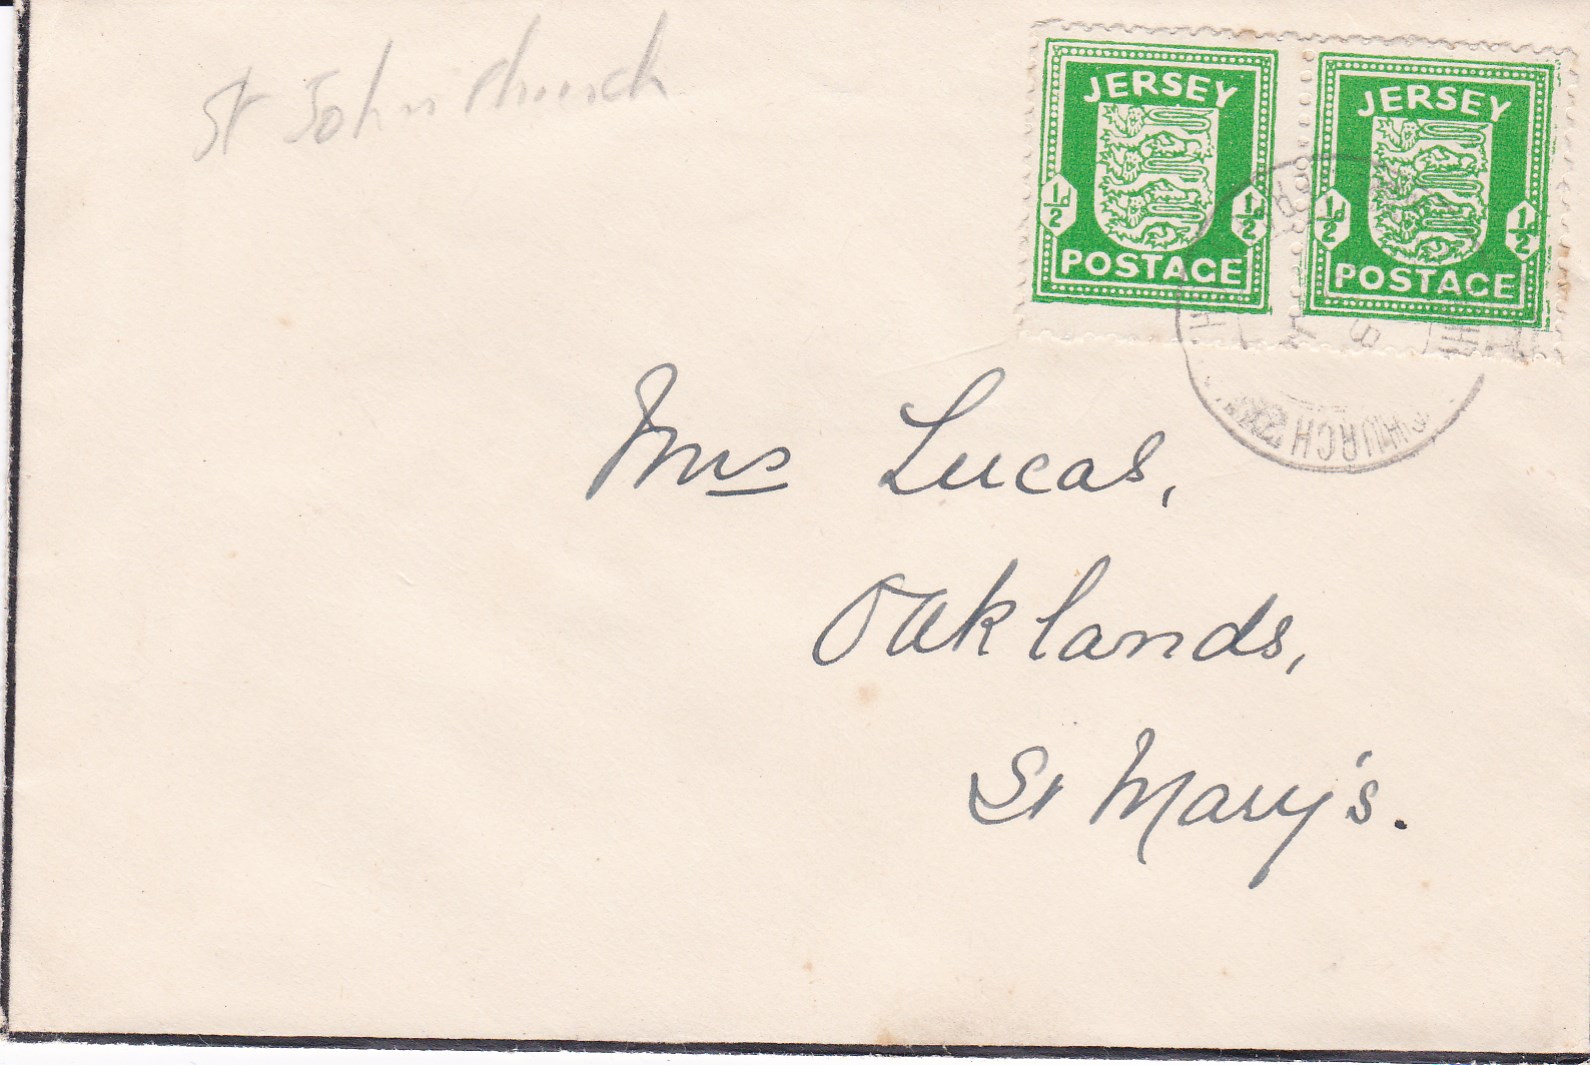 St Johns Church
JERSEY
1/2d 1/2
POSTAGE
JERSEY
1/2d 1/2
POSTAGE
CHURCH
Mrs Lucas,
Oaklands,
St Mary's.